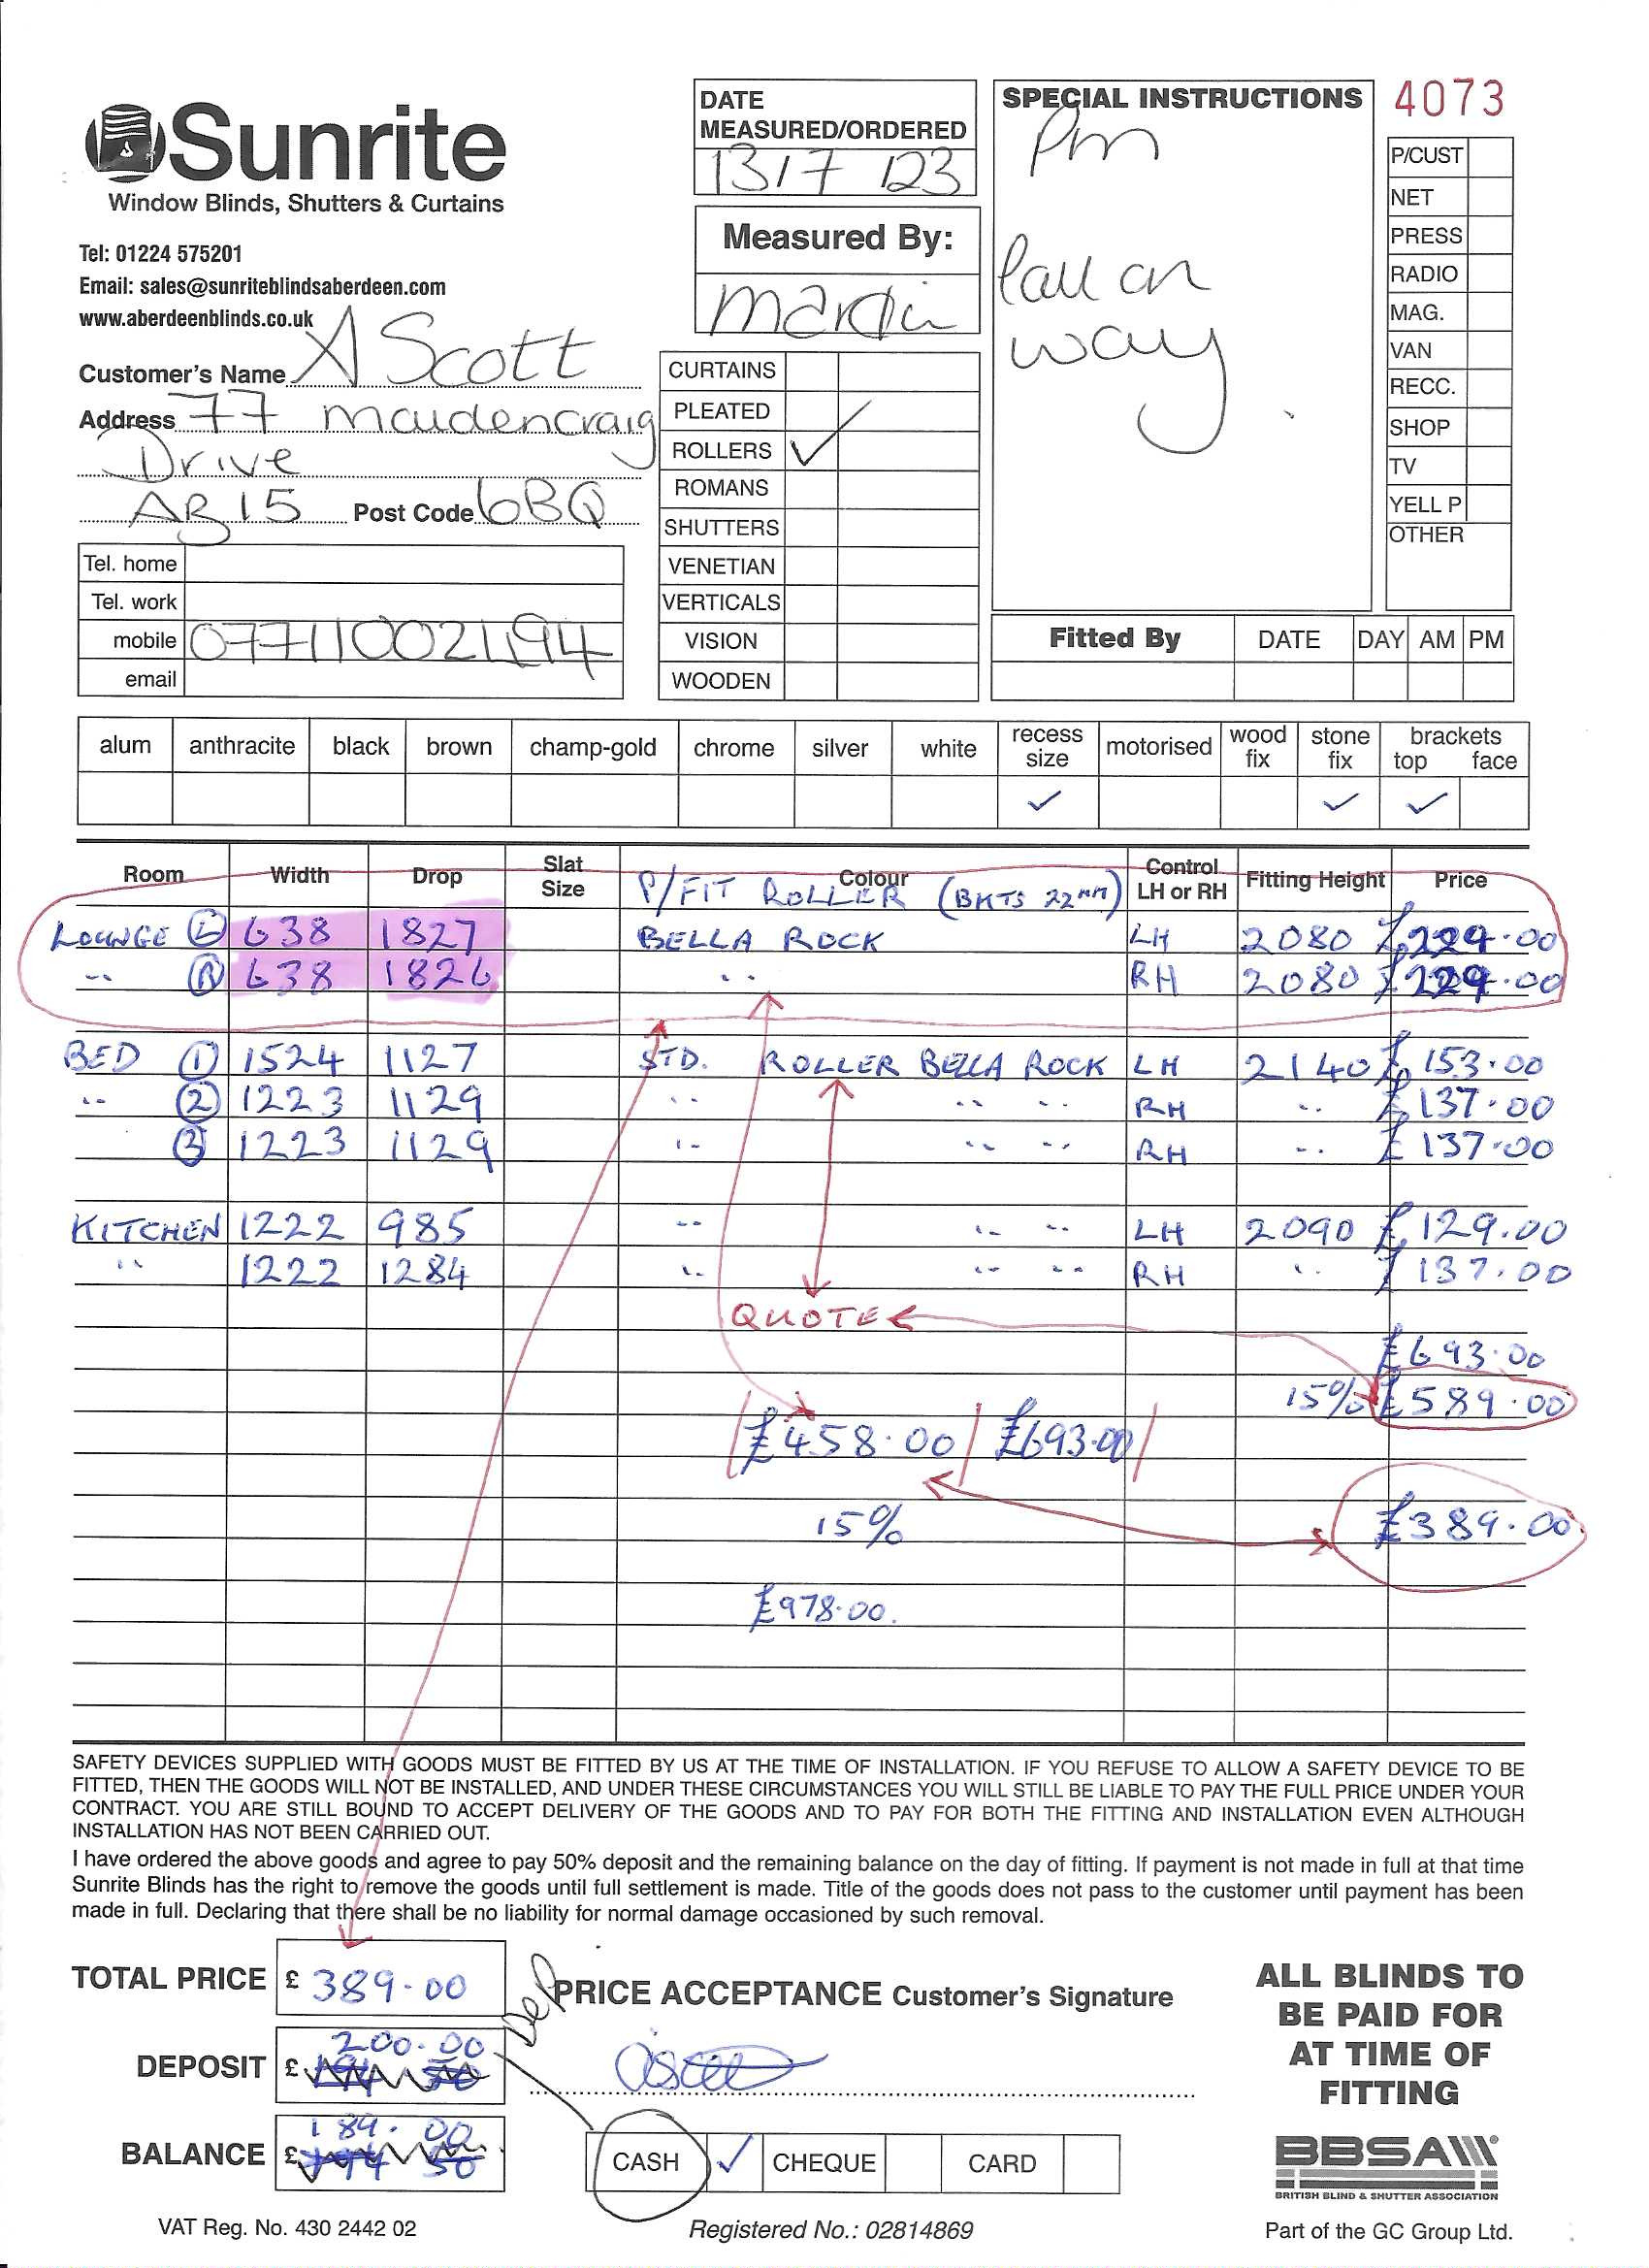 Sunrite
Window Blinds, Shutters & Curtains
Tel: 01224 575201
Email: sales@sunriteblindsaberdeen.com
www.aberdeenblinds.co.uk
Customer's Name A Scott
Address 77 Maidencraig
Drive
AB15 Post Code 6BQ
Tel. home
Tel. work
mobile 07711002194
email
DATE
MEASURED/ORDERED
13/7/23
Measured By:
Martin
CURTAINS
PLEATED
ROLLERS ✓
ROMANS
SHUTTERS
VENETIAN
VERTICALS
VISION
WOODEN
SPECIAL INSTRUCTIONS
Pm
Call on
way
4073
P/CUST
NET
PRESS
RADIO
MAG.
VAN
RECC.
SHOP
TV
YELL P
OTHER
Fitted By DATE DAY AM PM
alum anthracite black brown champ-gold chrome silver white recess size motorised wood fix stone fix brackets top face
✓ ✓ ✓
Room Width Drop Slat Size Colour Control LH or RH Fitting Height Price
P/FIT ROLLER (BKTS 22MM)
LOUNGE (L) 638 1827 BELLA ROCK LH 2080 £229.00
" (R) 638 1826 " RH 2080 £229.00
BED (1) 1524 1127 STD. ROLLER BELLA ROCK LH 2140 £153.00
" (2) 1223 1129 " " " RH " £137.00
(3) 1223 1129 " " " RH " £137.00
KITCHEN 1222 985 " " " LH 2090 £129.00
" 1222 1284 " " " RH " £137.00
QUOTE
£693.00
15% £589.00
£458.00 / £693.00
15% £389.00
£978.00.
SAFETY DEVICES SUPPLIED WITH GOODS MUST BE FITTED BY US AT THE TIME OF INSTALLATION. IF YOU REFUSE TO ALLOW A SAFETY DEVICE TO BE
FITTED, THEN THE GOODS WILL NOT BE INSTALLED, AND UNDER THESE CIRCUMSTANCES YOU WILL STILL BE LIABLE TO PAY THE FULL PRICE UNDER YOUR
CONTRACT. YOU ARE STILL BOUND TO ACCEPT DELIVERY OF THE GOODS AND TO PAY FOR BOTH THE FITTING AND INSTALLATION EVEN ALTHOUGH
INSTALLATION HAS NOT BEEN CARRIED OUT.
I have ordered the above goods and agree to pay 50% deposit and the remaining balance on the day of fitting. If payment is not made in full at that time
Sunrite Blinds has the right to remove the goods until full settlement is made. Title of the goods does not pass to the customer until payment has been
made in full. Declaring that there shall be no liability for normal damage occasioned by such removal.
TOTAL PRICE £ 389.00
DEPOSIT £ 200.00
BALANCE £ 189.00
Dep
PRICE ACCEPTANCE Customer's Signature
CASH ✓ CHEQUE CARD
ALL BLINDS TO
BE PAID FOR
AT TIME OF
FITTING
BBSA
BRITISH BLIND & SHUTTER ASSOCIATION
VAT Reg. No. 430 2442 02
Registered No.: 02814869
Part of the GC Group Ltd.